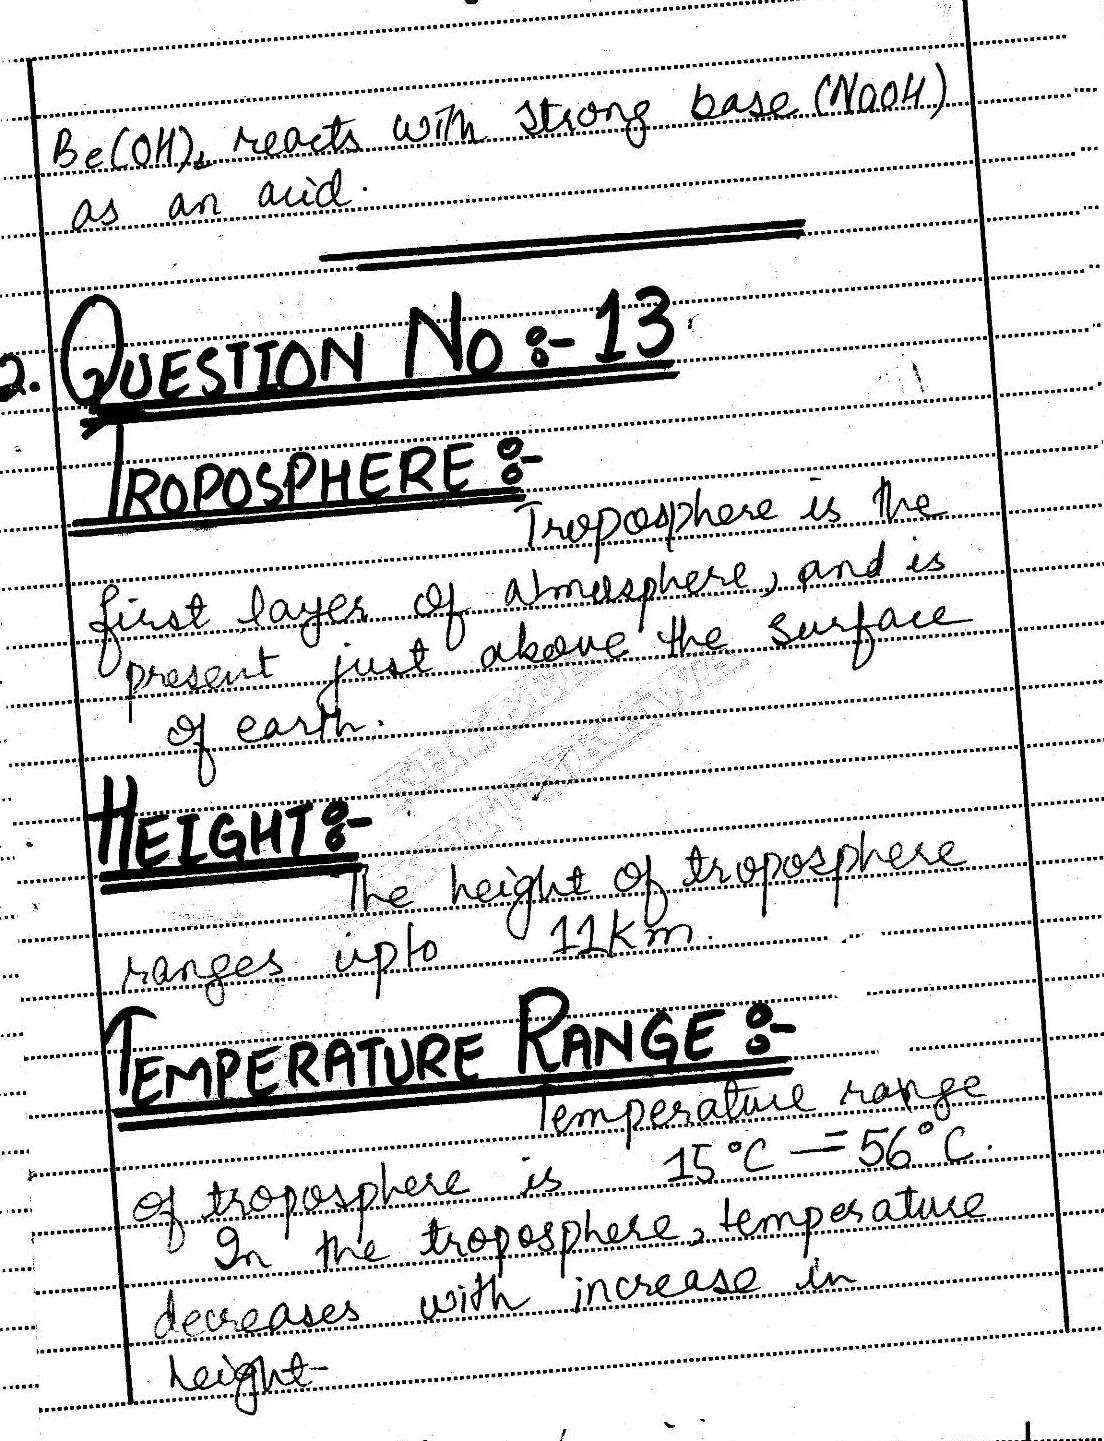 Be(OH)₂ reacts with strong base (NaOH)
as an acid.
2. QUESTION NO :- 13
TROPOSPHERE :-
Troposphere is the
first layer of atmosphere, and is
present just above the surface
of earth.
HEIGHT :-
The height of troposphere
ranges upto 11km.
TEMPERATURE RANGE :-
Temperature range
of troposphere is 15°C – -56°C.
In the troposphere, temperature
decreases with increase in
height-